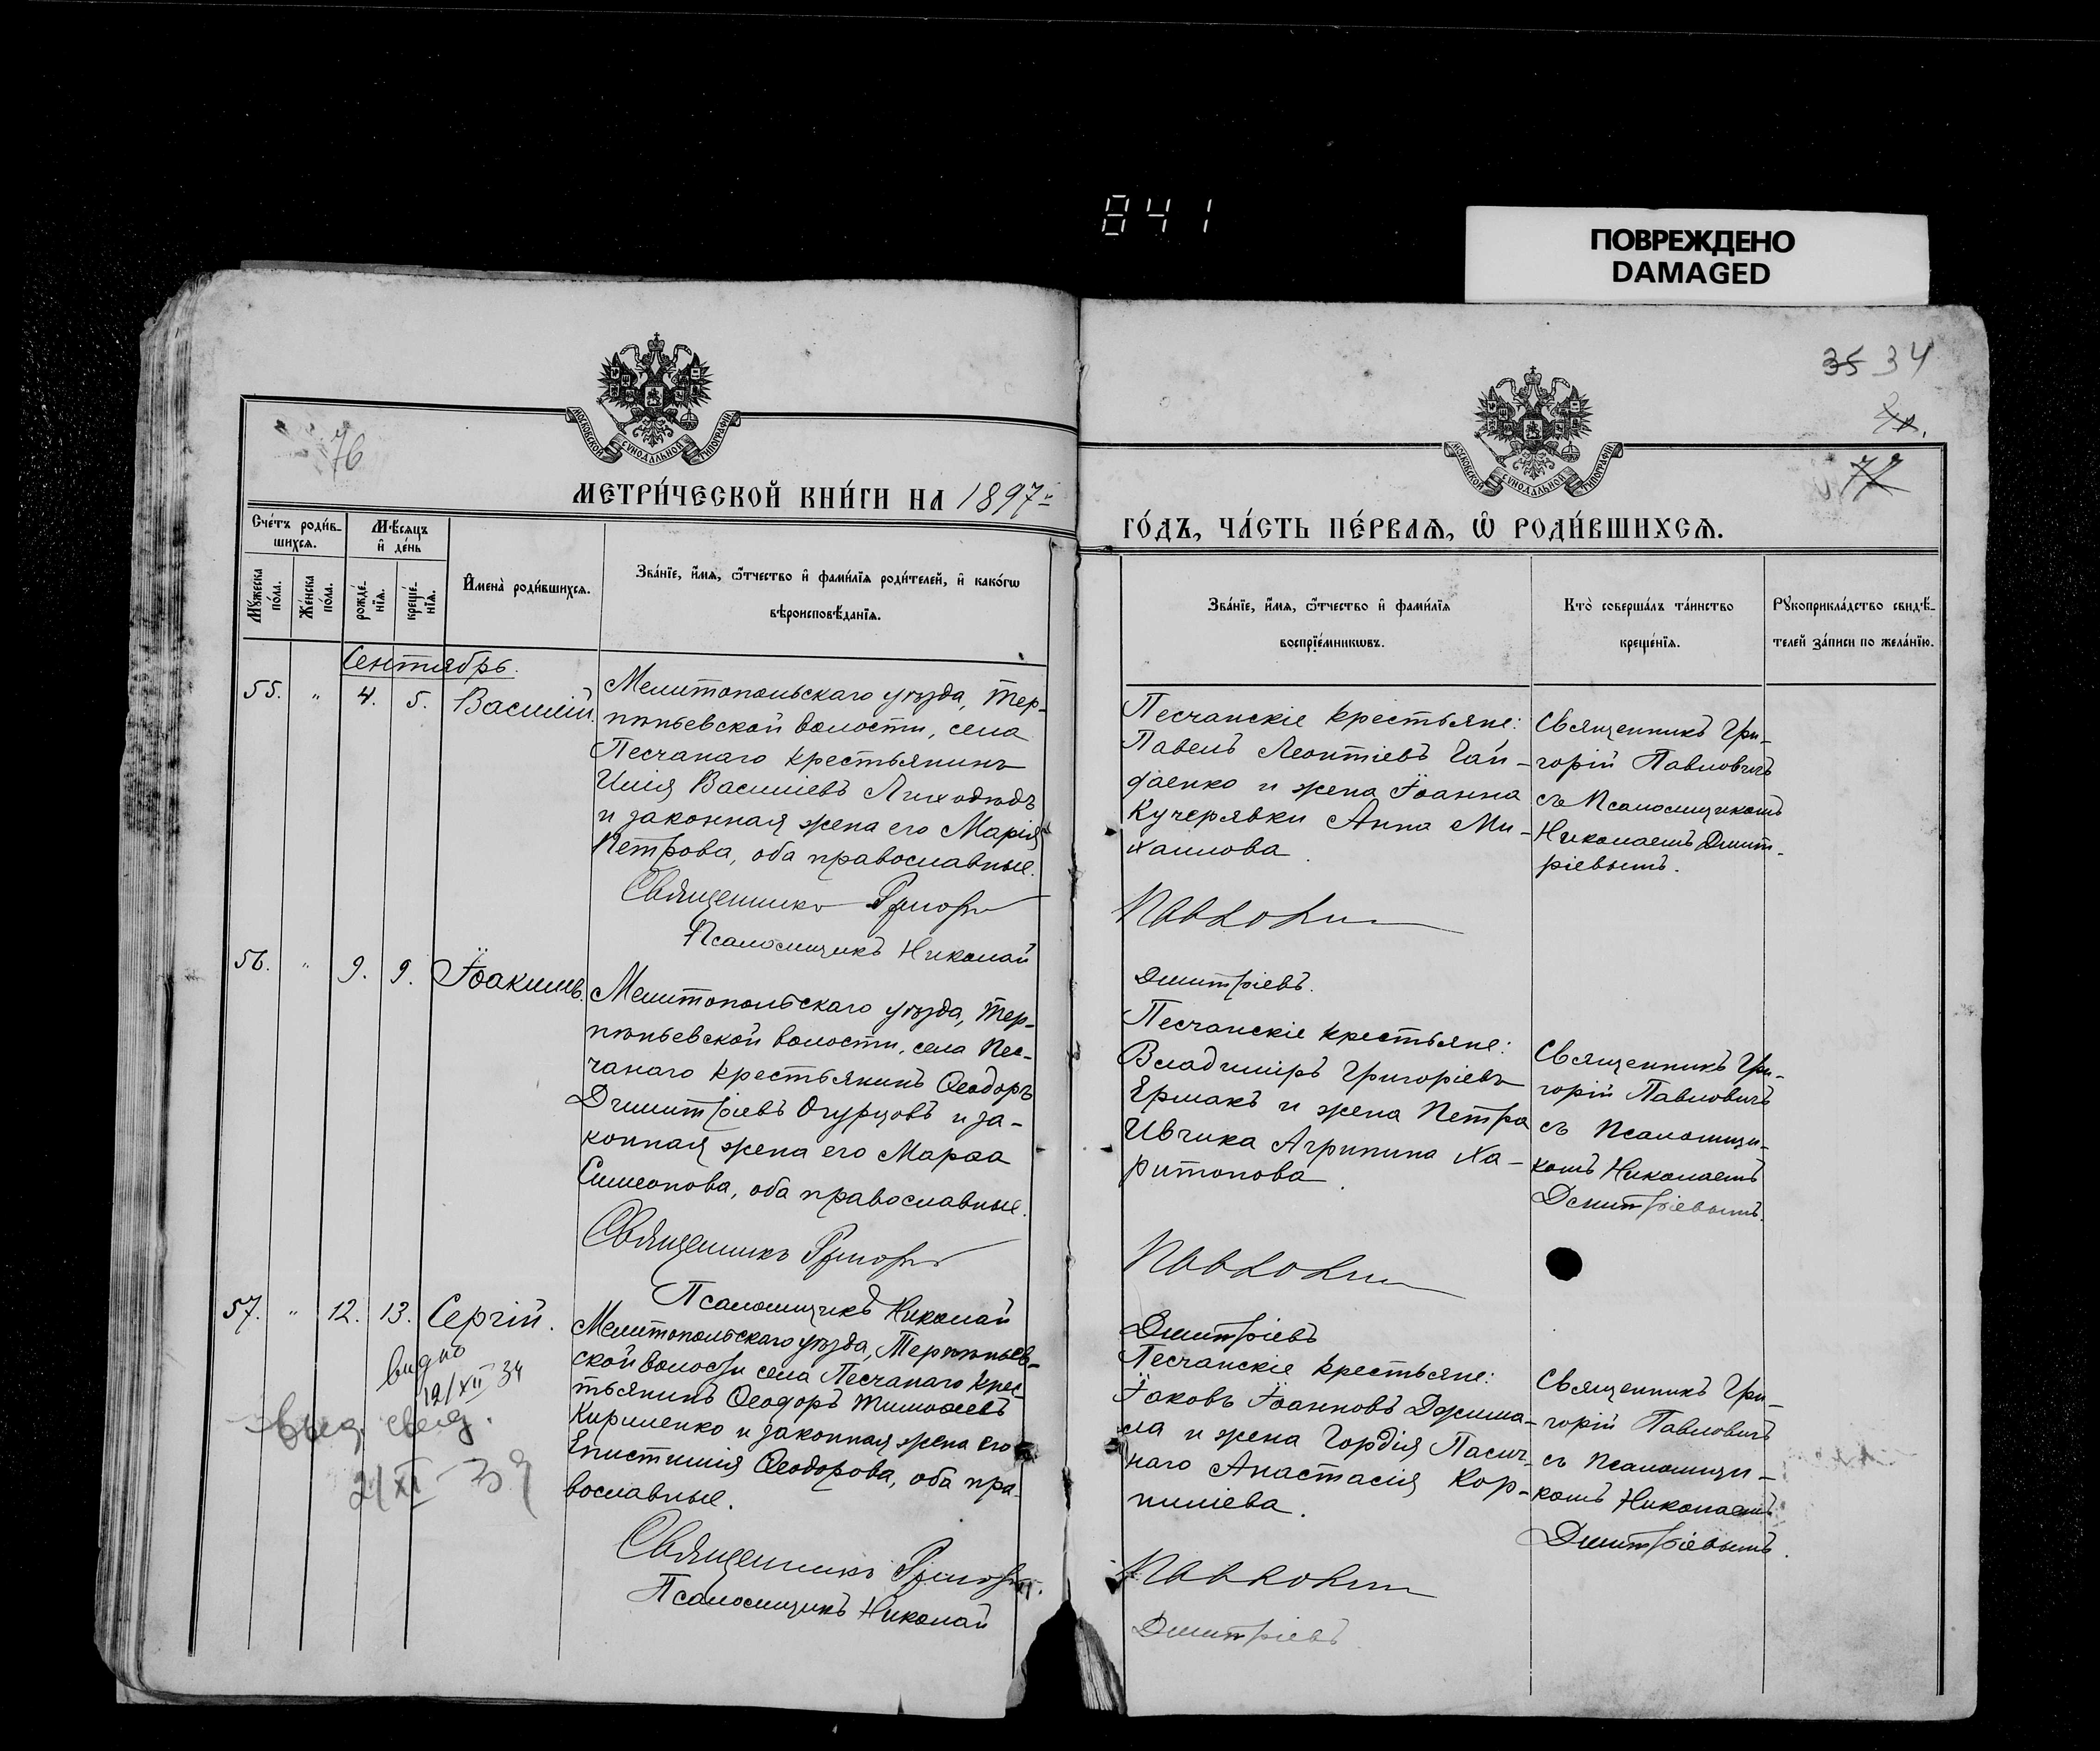 841
ПОВРЕЖДЕНО
DAMAGED
35 34
76
72
МОСКОВСКОЙ СѴНОДАЛЬНОЙ ТИПОГРАФІИ
МОСКОВСКОЙ СѴНОДАЛЬНОЙ ТИПОГРАФІИ
МЕТРИ́ЧЕСКОЙ КНИ́ГИ НА 1897й
ГО́ДЪ, ЧА́СТЬ ПЕ́РВАѦ, Ѡ҆ РОДИ́ВШИХСѦ.
Сче́тъ роди́в-
шихсѧ.
Мѣ́сѧцъ
и҆ де́нь
Мꙋ́жеска
по́ла.
Же́нска
по́ла.
рожде́-
нїѧ.
креще́-
нїѧ.
И҆мена̀ роди́вшихсѧ.
Зва́нїе, и҆́мѧ, ѻ҆́тчество и҆ фами́лїѧ роди́телей, и҆ како́гѡ
вѣроисповѣ́данїѧ.
Зва́нїе, и҆́мѧ, ѻ҆́тчество и҆ фами́лїѧ
воспрїе́мникѡвъ.
Кто̀ соверша́лъ та́инство
креще́нїѧ.
Рꙋкоприкла́дство свидѣ́-
телей за́писи по жела́нїю.
Сентябрь.
55. " 4. 5. Василій.
Мелитопольскаго уѣзда, Тер-
пѣньевской волости, села
Песчанаго крестьянинъ
Илія Василіевъ Лиходѣдъ
и законная жена его Марія
Петрова, оба православные.
Священникъ Григорій
Псаломщикъ Николай
Песчанскіе крестьяне:
Павелъ Леонтіевъ Гай-
даенко и жена Іоанна
Кучерявки Анна Ми-
хаилова.
Павловичъ
Дмитріевъ.
Священникъ Гри-
горій Павловичъ
съ Псаломщикомъ
Николаемъ Дмит-
ріевымъ.
56. " 9. 9. Іоакимъ.
Мелитопольскаго уѣзда, Тер-
пѣньевской волости, села Пес-
чанаго крестьянинъ Ѳеодоръ
Димитріевъ Огурцовъ и за-
конная жена его Марѳа
Симеонова, оба православные.
Священникъ Григорій
Псаломщикъ Николай
Песчанскіе крестьяне:
Владиміръ Григоріевъ
Ермакъ и жена Петра
Ивчика Агрипина Ха-
ритонова.
Павловичъ
Дмитріевъ
Священникъ Гри-
горій Павловичъ
съ Псаломщи-
комъ Николаемъ
Дмитріевымъ.
57. " 12. 13. Сергій.
видно
12/XII 34
выд. свид.
21/XI - 39
Мелитопольскаго уѣзда, Терпѣньев-
ской волости села Песчанаго крес-
тьянинъ Ѳеодоръ Тимоѳеевъ
Кириленко и законная жена его
Епистимія Ѳеодорова, оба пра-
вославные.
Священникъ Григорій
Псаломщикъ Николай
Песчанскіе крестьяне:
Іаковъ Іоанновъ Джима-
ла и жена Гордія Пасич-
наго Анастасія Кор-
ниліева.
Павловичъ
Дмитріевъ
Священникъ Гри-
горій Павловичъ
съ Псаломщи-
комъ Николаемъ
Дмитріевымъ.